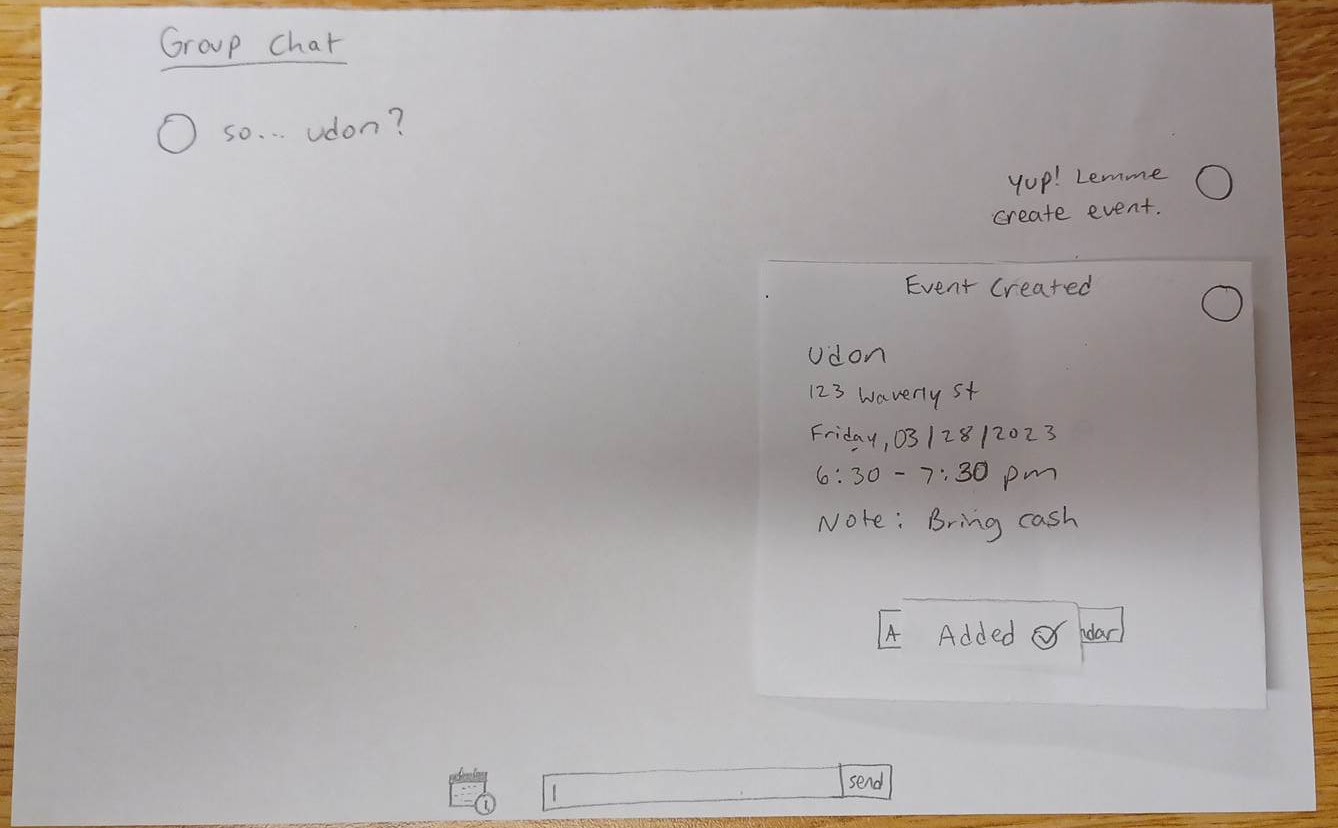 Group Chat
so... udon?
Yup! Lemme
create event.
Event Created
Udon
123 Waverly St
Friday, 03/28/2023
6:30 - 7:30 pm
Note: Bring cash
A Added ndar
send